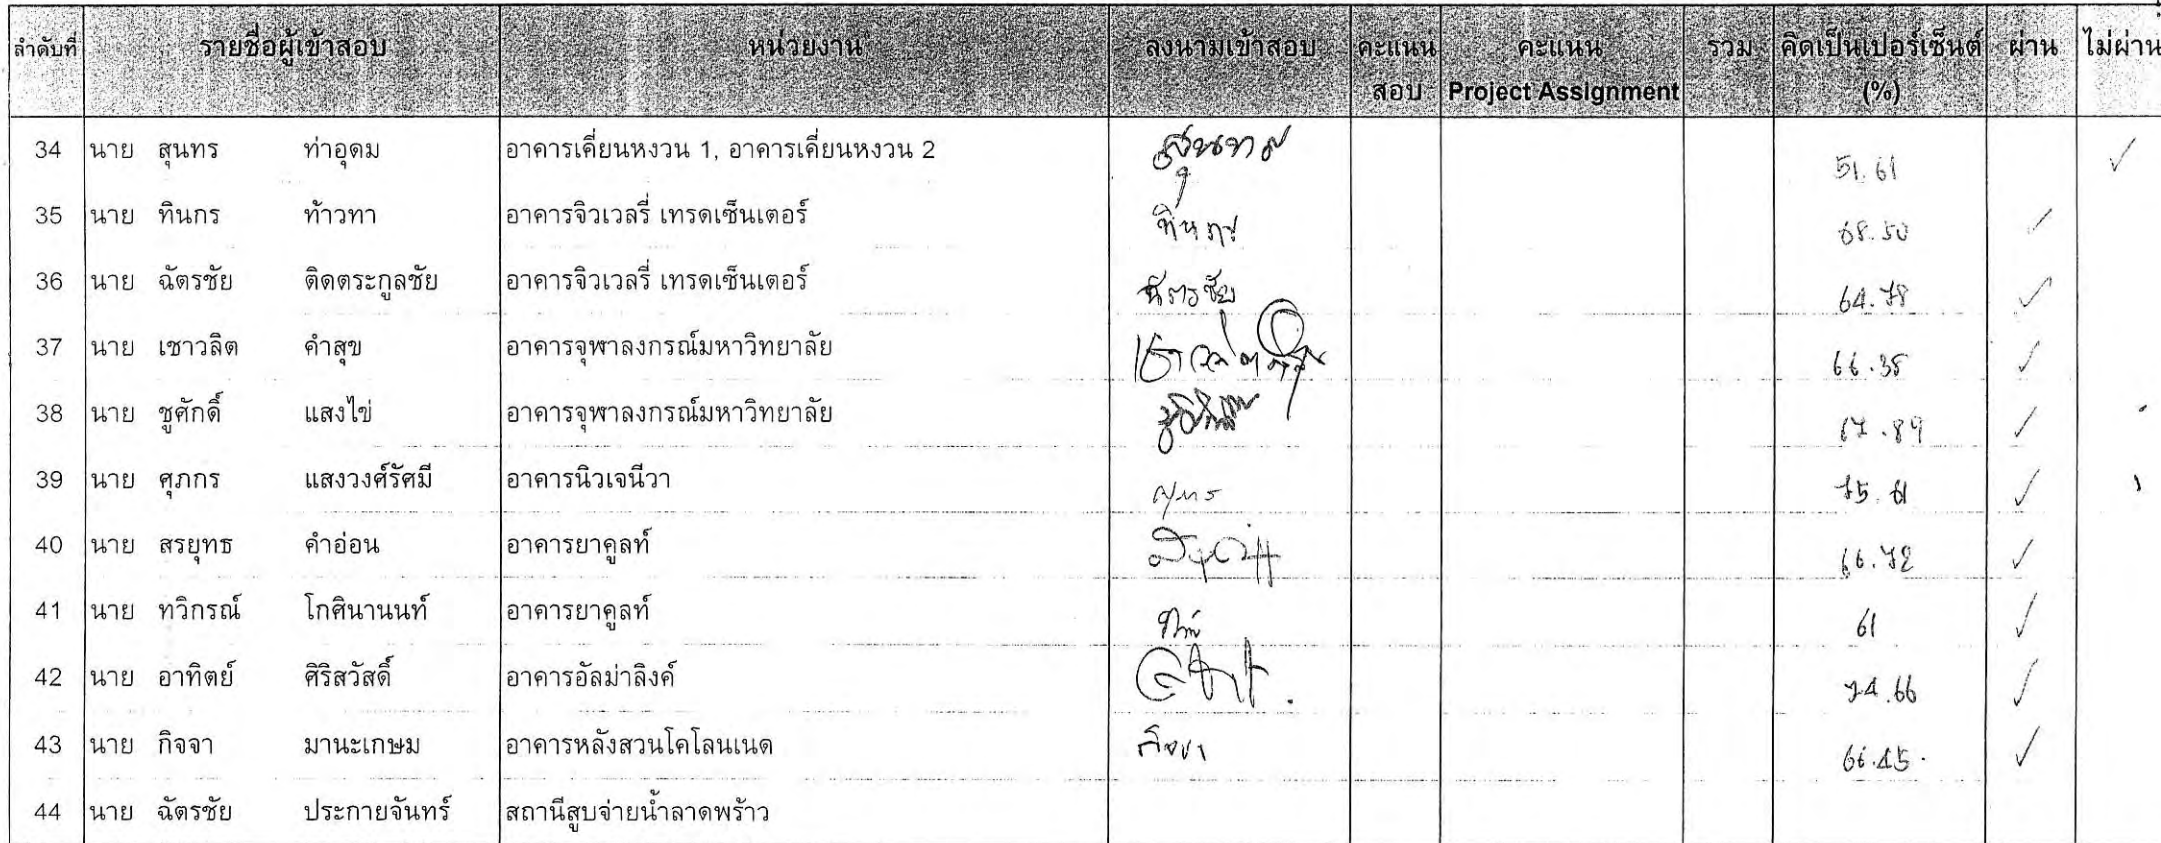 ลำดับที่ รายชื่อผู้เข้าสอบ หน่วยงาน ลงนามเข้าสอบ คะแนนสอบ คะแนน Project Assignment รวม คิดเป็นเปอร์เซ็นต์ (%) ผ่าน ไม่ผ่าน
34 นาย สุนทร ท่าอุดม อาคารเคี่ยนหงวน 1, อาคารเคี่ยนหงวน 2 สุนทร 51.61 ✓
35 นาย ทินกร ท้าวทา อาคารจิวเวลรี่ เทรดเซ็นเตอร์ ทินกร 68.50 ✓
36 นาย ฉัตรชัย ติดตระกูลชัย อาคารจิวเวลรี่ เทรดเซ็นเตอร์ ฉัตรชัย 64.78 ✓
37 นาย เชาวลิต คำสุข อาคารจุฬาลงกรณ์มหาวิทยาลัย 66.38 ✓
38 นาย ชูศักดิ์ แสงไข่ อาคารจุฬาลงกรณ์มหาวิทยาลัย 67.89 ✓
39 นาย ศุภกร แสงวงศ์รัศมี อาคารนิวเจนีวา 75.61 ✓
40 นาย สรยุทธ คำอ่อน อาคารยาคูลท์ 66.72 ✓
41 นาย ทวิกรณ์ โกศินานนท์ อาคารยาคูลท์ 61 ✓
42 นาย อาทิตย์ ศิริสวัสดิ์ อาคารอัลม่าลิงค์ 74.66 ✓
43 นาย กิจจา มานะเกษม อาคารหลังสวนโคโลนเนด กิจจา 66.45 ✓
44 นาย ฉัตรชัย ประกายจันทร์ สถานีสูบจ่ายน้ำลาดพร้าว